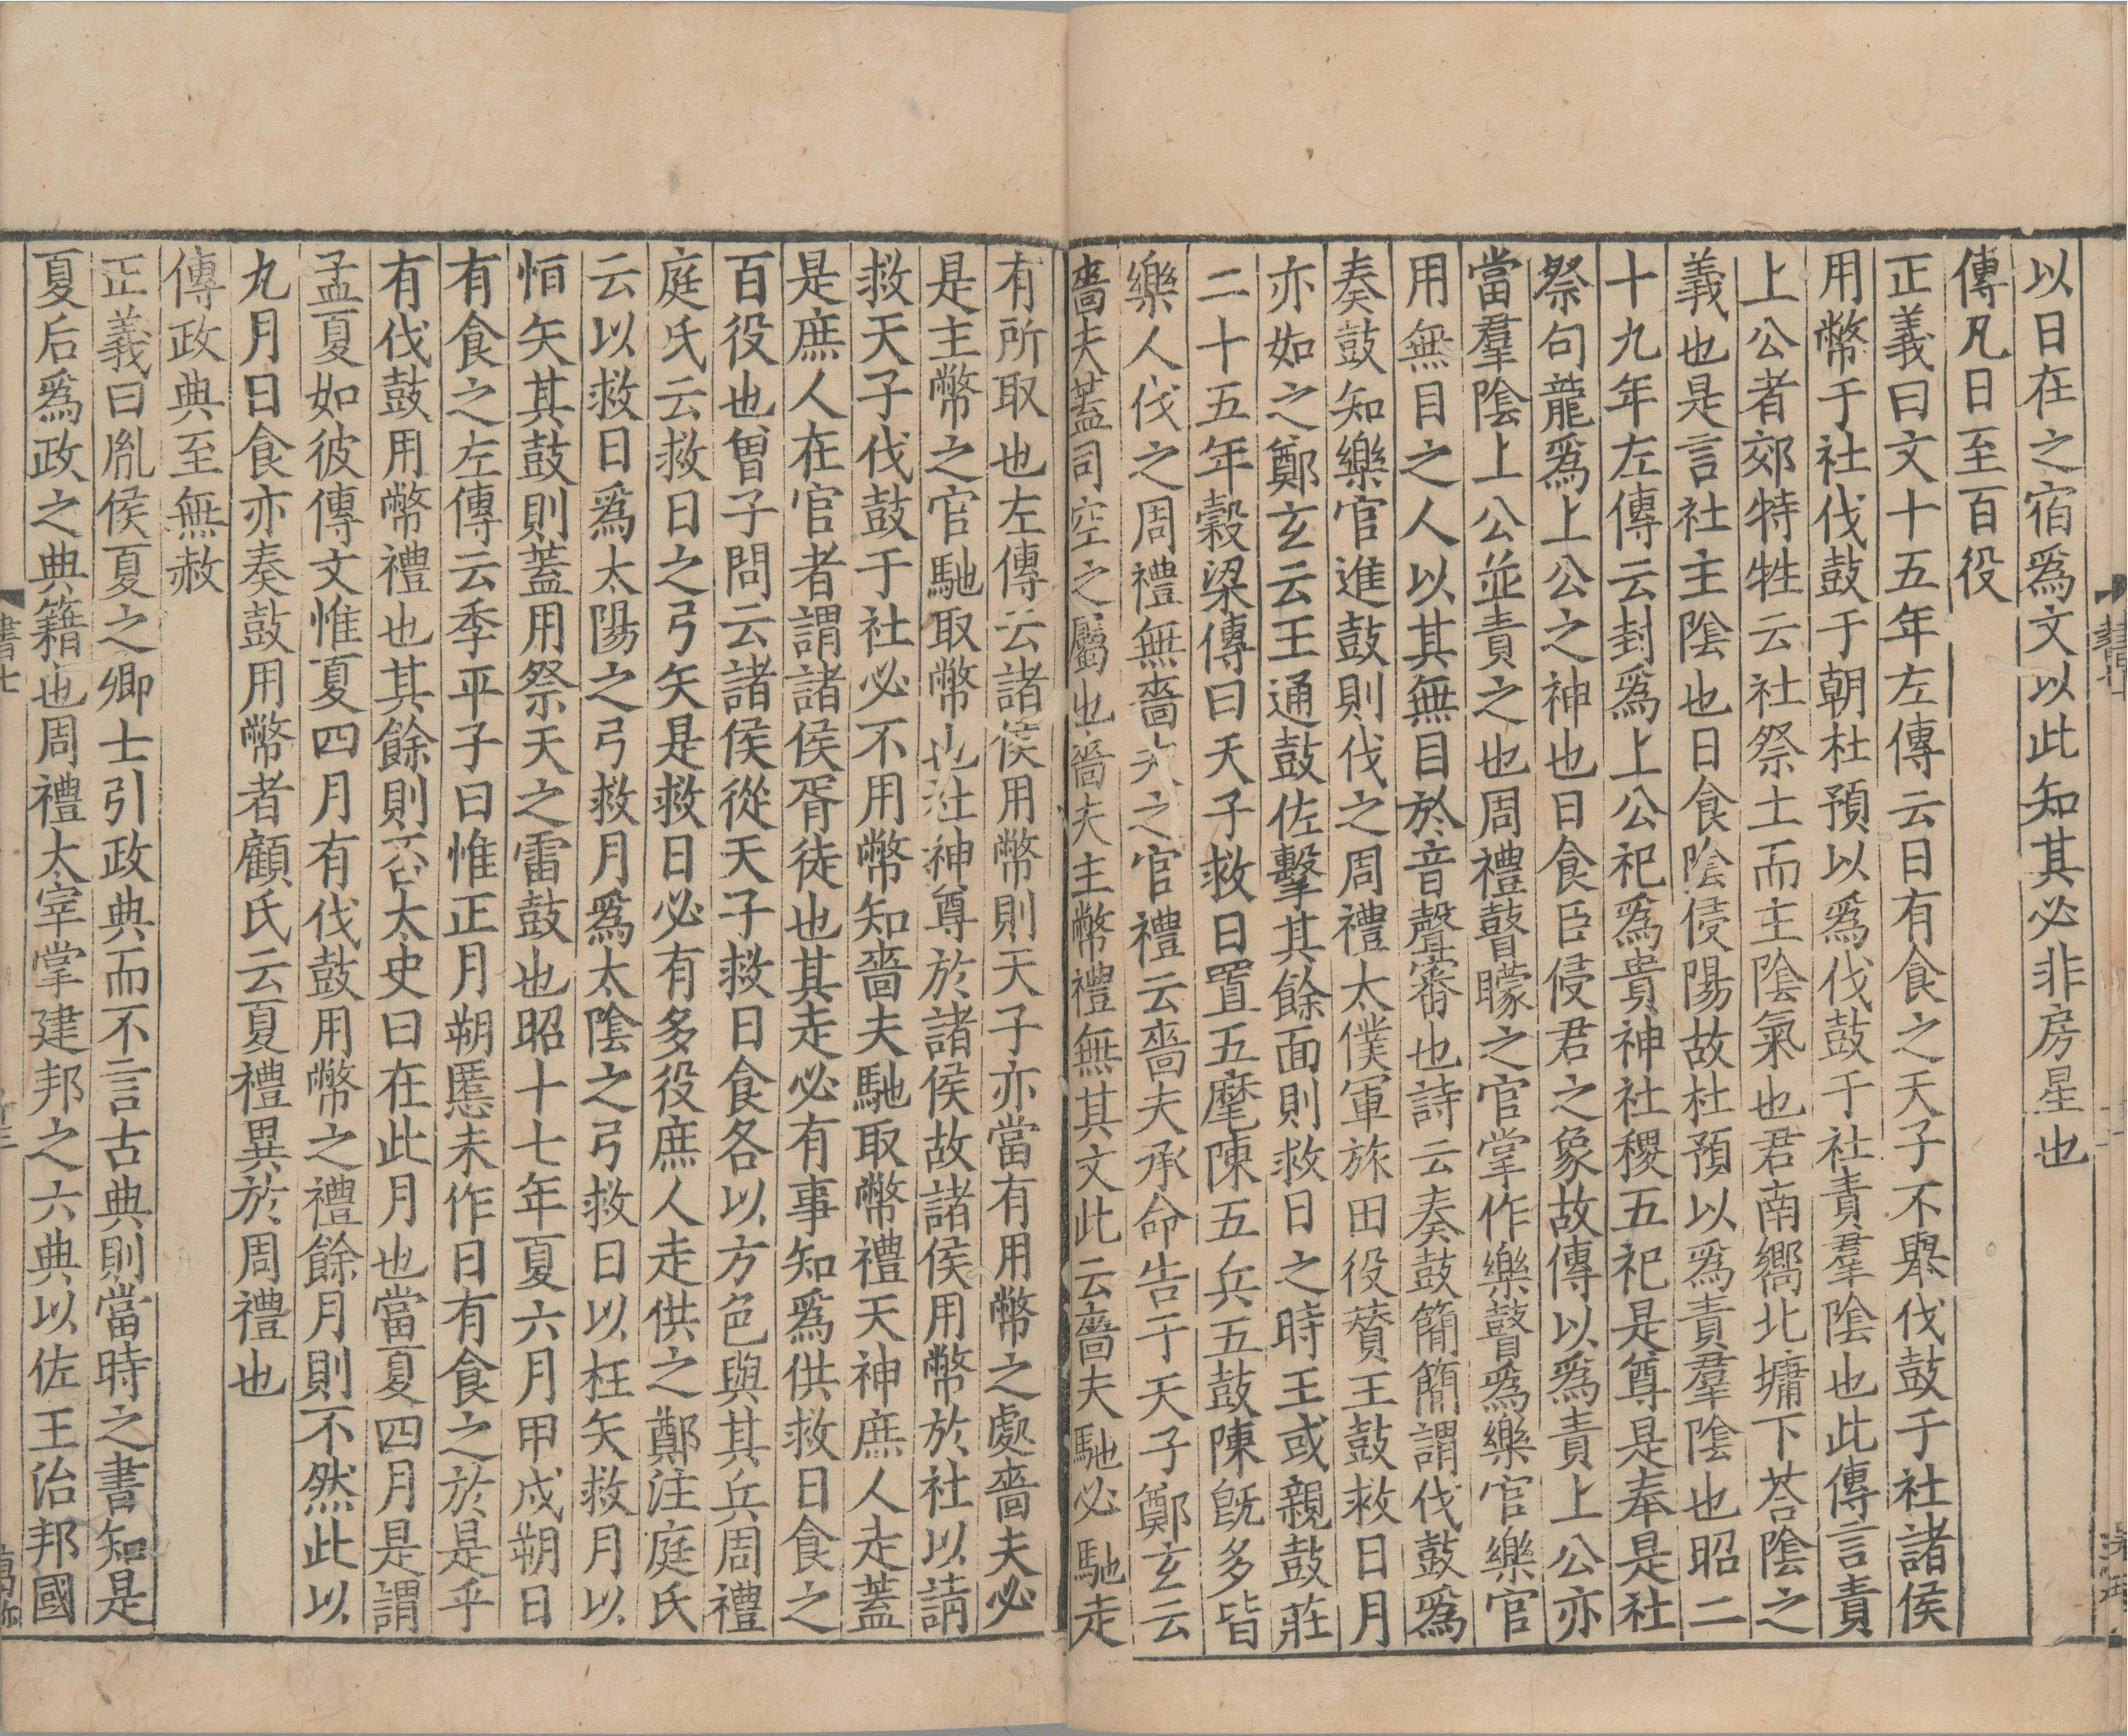 以日在之宿爲文以此知其必非房星也
傳凡日至百役
正義曰文十五年左傳云日有食之天子不舉伐鼓于社諸侯
用幣于社伐鼓于朝杜預以爲伐鼓于社責羣陰也此傳言責
上公者郊特牲云社祭土而主陰氣也君南嚮北墉下荅陰之
義也是言社主陰也日食陰侵陽故杜預以爲責羣陰也昭二
十九年左傳云封爲上公祀爲貴神社稷五祀是尊是奉是社
祭句龍爲上公之神也日食臣侵君之象故傳以爲責上公亦
當羣陰上公並責之也周禮瞽矇之官掌作樂瞽爲樂官樂官
用無目之人以其無目於音聲審也詩云奏鼓簡簡謂伐鼓爲
奏鼓知樂官進鼓則伐之周禮太僕軍旅田役贊王鼓救日月
亦如之鄭玄云王通鼓佐擊其餘面則救日之時王或親鼓莊
二十五年穀梁傳曰天子救日置五麾陳五兵五鼓陳旣多皆
樂人伐之周禮無嗇夫之官禮云嗇夫承命告于天子鄭玄云
嗇夫蓋司空之屬也嗇夫主幣禮無其文此云嗇夫馳必馳走
有所取也左傳云諸侯用幣則天子亦當有用幣之處嗇夫必
是主幣之官馳取幣也社神尊於諸侯故諸侯用幣於社以請
救天子伐鼓于社必不用幣知嗇夫馳取幣禮天神庶人走蓋
是庶人在官者謂諸侯胥徒也其走必有事知爲供救日食之
百役也曾子問云諸侯從天子救日食各以方色與其兵周禮
庭氏云救日之弓矢是救日必有多役庶人走供之鄭注庭氏
云以救日爲太陽之弓救月爲太陰之弓救日以枉矢救月以
恒矢其鼓則蓋用祭天之雷鼓也昭十七年夏六月甲戌朔日
有食之左傳云季平子曰惟正月朔慝未作日有食之於是乎
有伐鼓用幣禮也其餘則否太史曰在此月也當夏四月是謂
孟夏如彼傳文惟夏四月有伐鼓用幣之禮餘月則不然此以
九月日食亦奏鼓用幣者顧氏云夏禮異於周禮也
傳政典至無赦
正義曰胤侯夏之卿士引政典而不言古典則當時之書知是
夏后爲政之典籍也周禮太宰掌建邦之六典以佐王治邦國